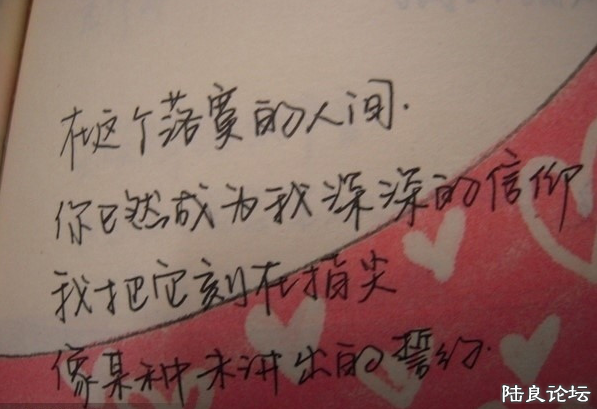 在这个落寞的人间.
你已然成为我深深的信仰
我把它刻在指尖
像某种未讲出的誓约.
陆良论坛